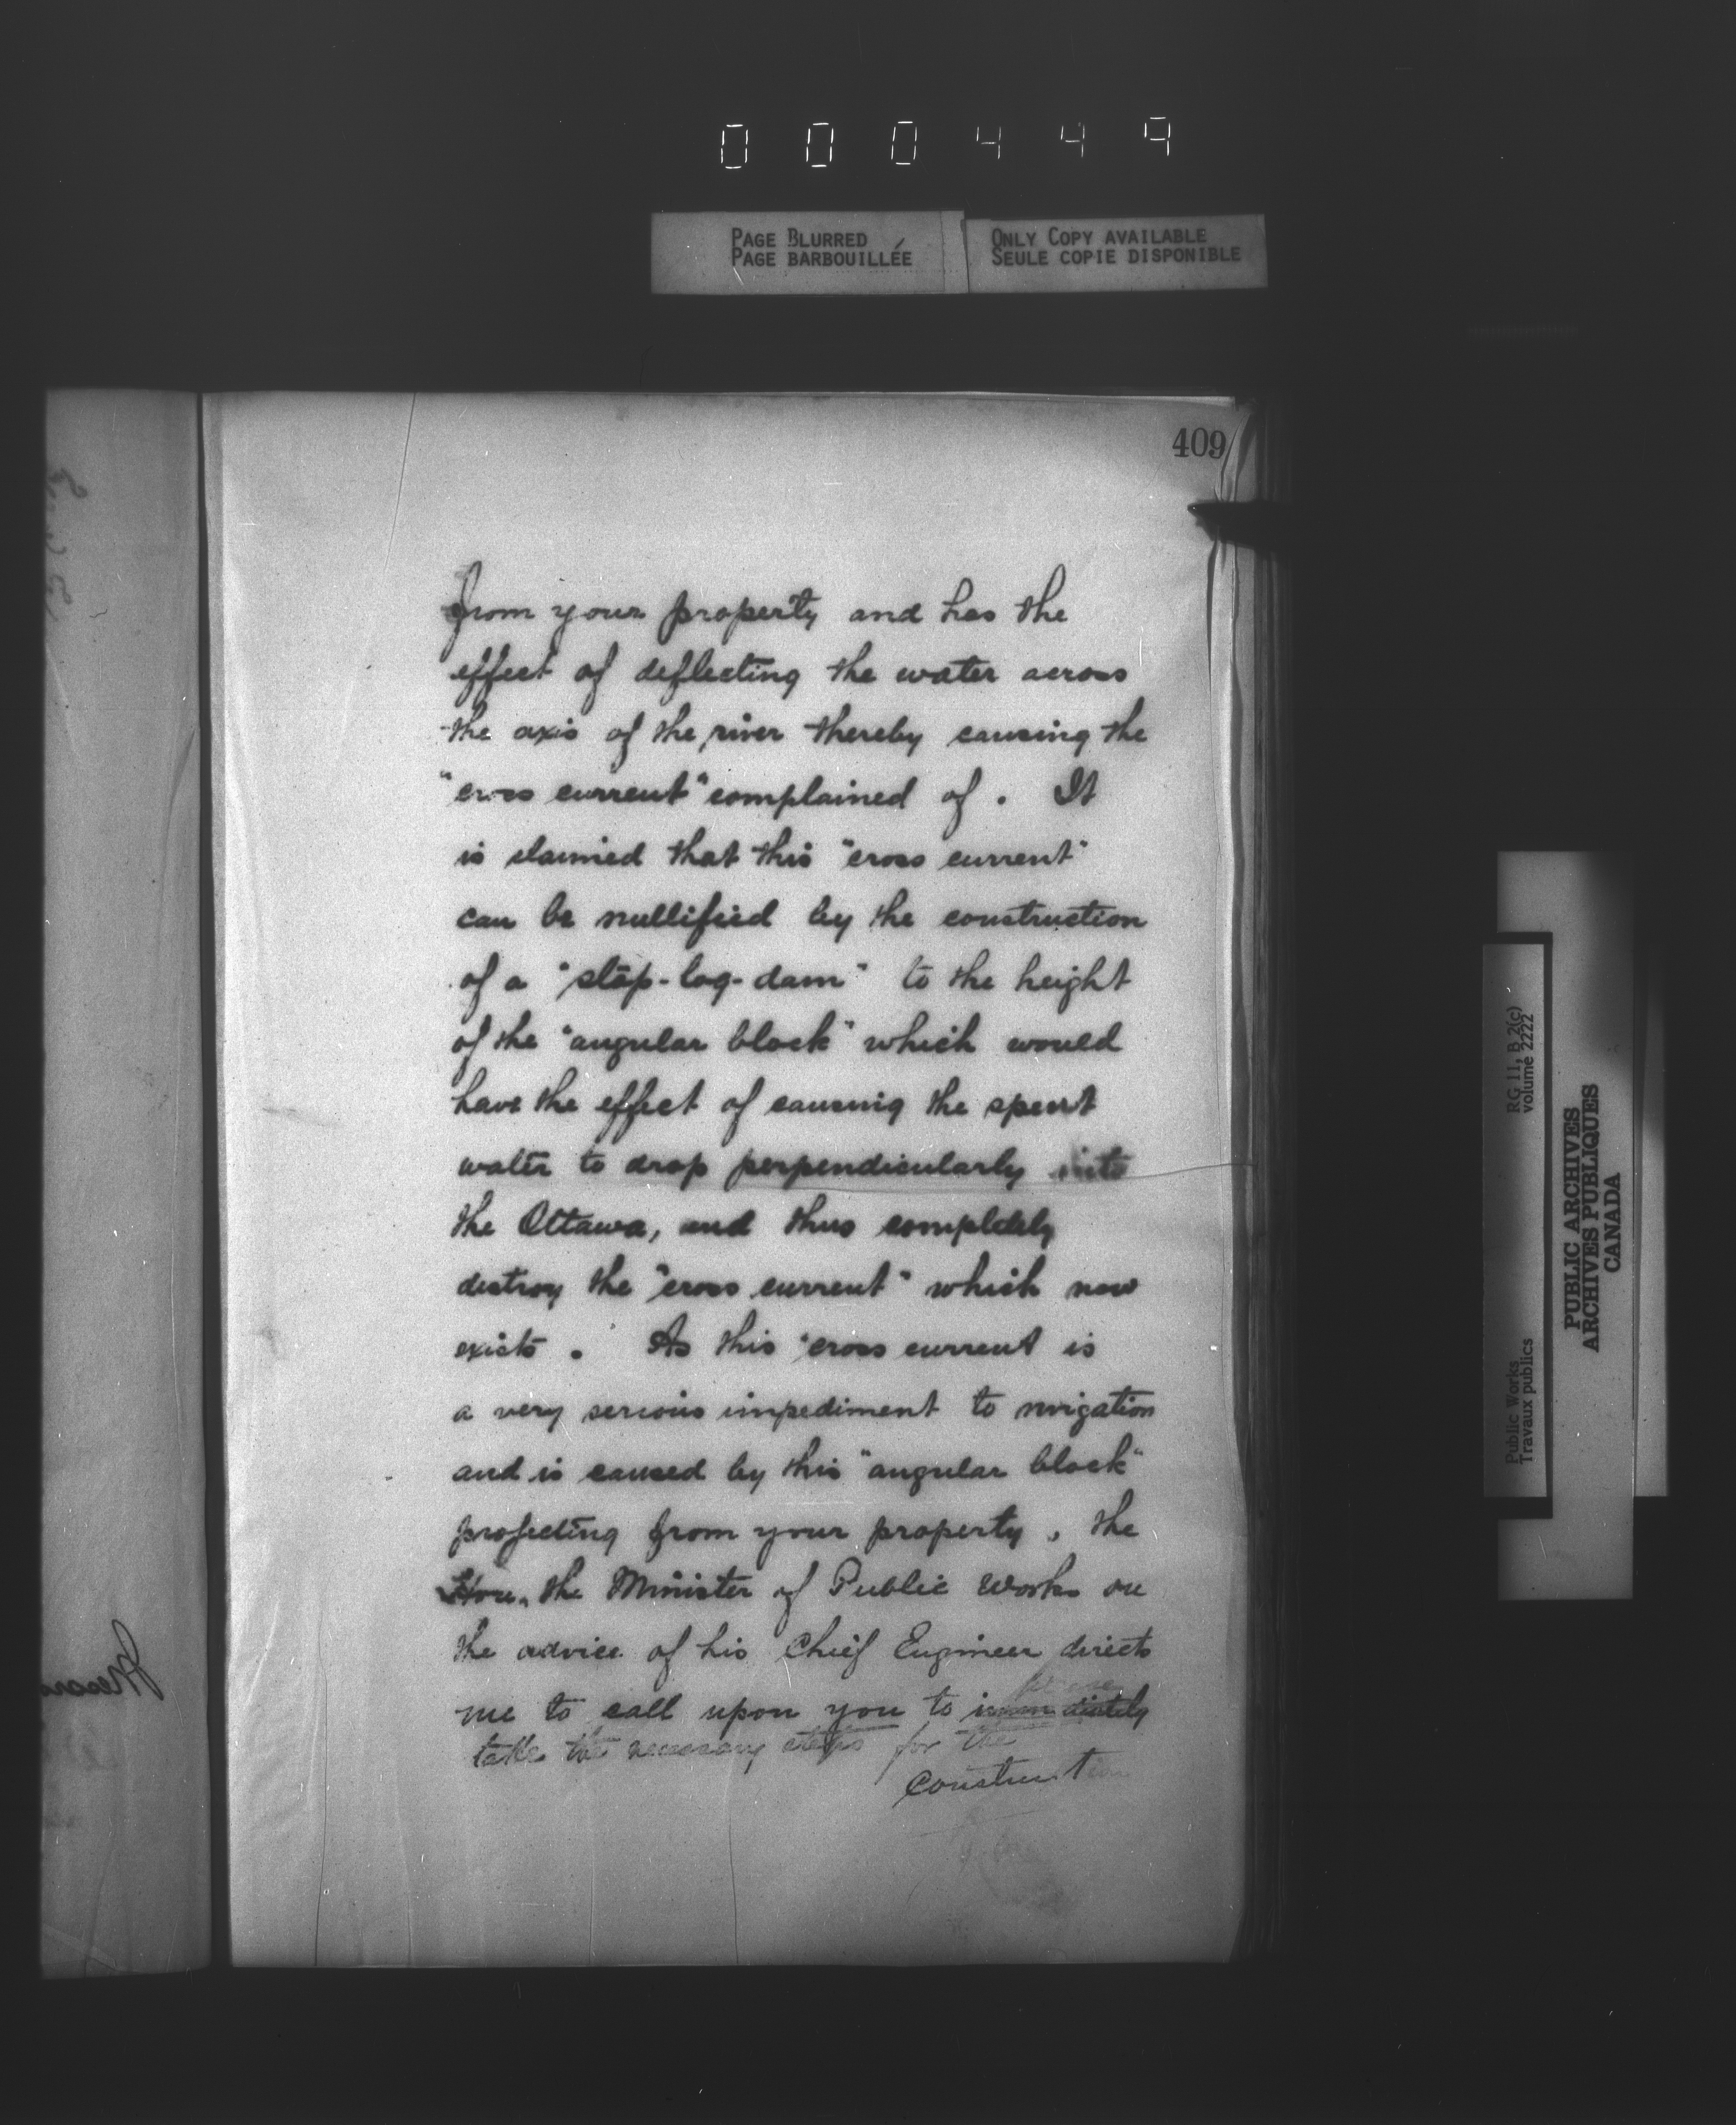 000449
PAGE BLURRED
PAGE BARBOUILLÉE
ONLY COPY AVAILABLE
SEULE COPIE DISPONIBLE
409
from your property and has the
effect of deflecting the water across
the axis of the river thereby causing the
"cross current" complained of. It
is claimed that this "cross current"
can be nullified by the construction
of a "stop-log-dam" to the height
of the "angular block" which would
have the effect of causing the spent
water to drop perpendicularly into
the Ottawa, and thus completely
destroy the "cross current" which now
exists. As this "cross current is
a very serious impediment to nvigation
and is caused by this "angular block"
projecting from your property, the
Hon. the Minister of Public Works on
the advice of his Chief Engineer directs
me to call upon you to immediately
take the necessary steps for the
construction
Public Works
Travaux publics
RG 11, B 2(c)
volume 2222
PUBLIC ARCHIVES
ARCHIVES PUBLIQUES
CANADA